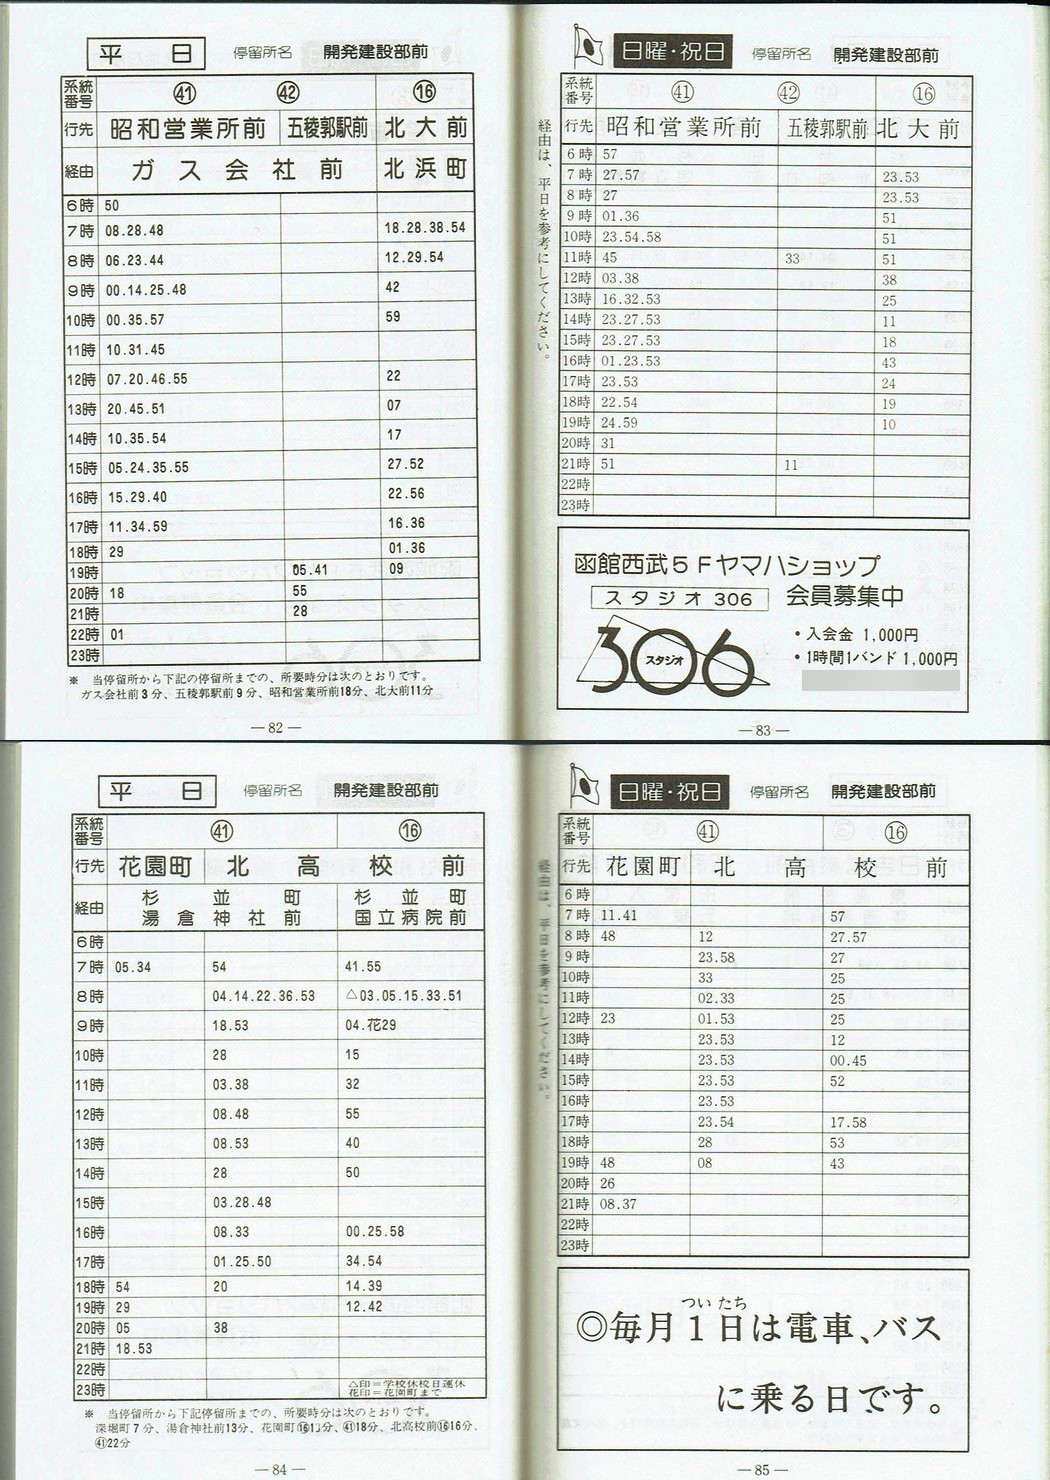 平 日 停留所名 開発建設部前
系統番号 ㊶ ㊷ ⑯
行先 昭和営業所前 五稜郭駅前 北大前
経由 ガス会社前 北浜町
6時 50
7時 08.28.48 18.28.38.54
8時 06.23.44 12.29.54
9時 00.14.25.48 42
10時 00.35.57 59
11時 10.31.45
12時 07.20.46.55 22
13時 20.45.51 07
14時 10.35.54 17
15時 05.24.35.55 27.52
16時 15.29.40 22.56
17時 11.34.59 16.36
18時 29 01.36
19時 05.41 09
20時 18 55
21時 28
22時 01
23時
※ 当停留所から下記の停留所までの、所要時分は次のとおりです。
ガス会社前3分、五稜郭駅前9分、昭和営業所前18分、北大前11分
― 82 ―
日曜・祝日 停留所名 開発建設部前
経由は、平日を参考にしてください。
系統番号 ㊶ ㊷ ⑯
行先 昭和営業所前 五稜郭駅前 北大前
6時 57
7時 27.57 23.53
8時 27 23.53
9時 01.36 51
10時 23.54.58 51
11時 45 33 51
12時 03.38 38
13時 16.32.53 25
14時 23.27.53 11
15時 23.27.53 18
16時 01.23.53 43
17時 23.53 24
18時 22.54 19
19時 24.59 10
20時 31
21時 51 11
22時
23時
函館西武5Fヤマハショップ
スタジオ 306 会員募集中
306
スタジオ
・入会金 1,000円
・1時間1バンド 1,000円
― 83 ―
平 日 停留所名 開発建設部前
系統番号 ㊶ ⑯
行先 花園町 北高校前
経由 杉並町 杉並町
湯倉神社前 国立病院前
6時
7時 05.34 54 41.55
8時 04.14.22.36.53 △03.05.15.33.51
9時 18.53 04.花29
10時 28 15
11時 03.38 32
12時 08.48 55
13時 08.53 40
14時 28 50
15時 03.28.48
16時 08.33 00.25.58
17時 01.25.50 34.54
18時 54 20 14.39
19時 29 12.42
20時 05 38
21時 18.53
22時
23時 △印=学校休校日運休
花印=花園町まで
※ 当停留所から下記停留所までの、所要時分は次のとおりです。
深堀町7分、湯倉神社前13分、花園町⑯ ㊶18分、北高校前⑯16分、
㊶22分
― 84 ―
日曜・祝日 停留所名 開発建設部前
経由は、平日を参考にしてください。
系統番号 ㊶ ⑯
行先 花園町 北高校前
6時
7時 11.41 57
8時 48 12 27.57
9時 23.58 27
10時 33 25
11時 02.33 25
12時 23 01.53 25
13時 23.53 12
14時 23.53 00.45
15時 23.53 52
16時 23.53
17時 23.54 17.58
18時 28 53
19時 48 08 43
20時 26
21時 08.37
22時
23時
ついたち
◎毎月1日は電車、バス
に乗る日です。
― 85 ―